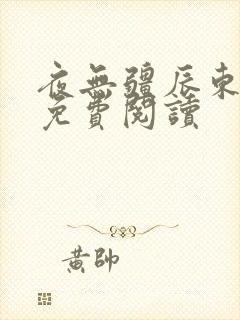 夜無疆辰東
免費閱讀
黃帥